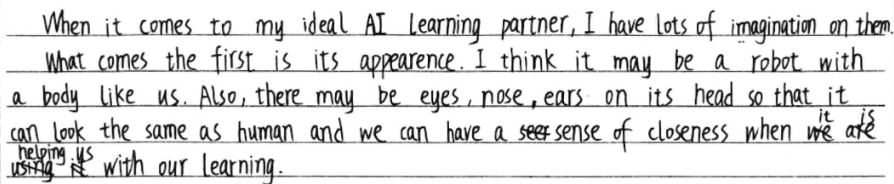 When it comes to my ideal AI learning partner, I have lots of imagination on them.
What comes the first is its appearence. I think it may be a robot with
a body like us. Also, there may be eyes, nose, ears on its head so that it
can look the same as human and we can have a sense of closeness when it is
helping us with our learning.